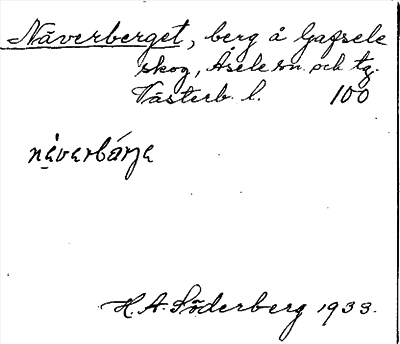 Näverberget, berg å Gafsele
skog, Åsele sn. och tg.
Västerb. l. 100
näverbárje
H. A. Söderberg 1933.